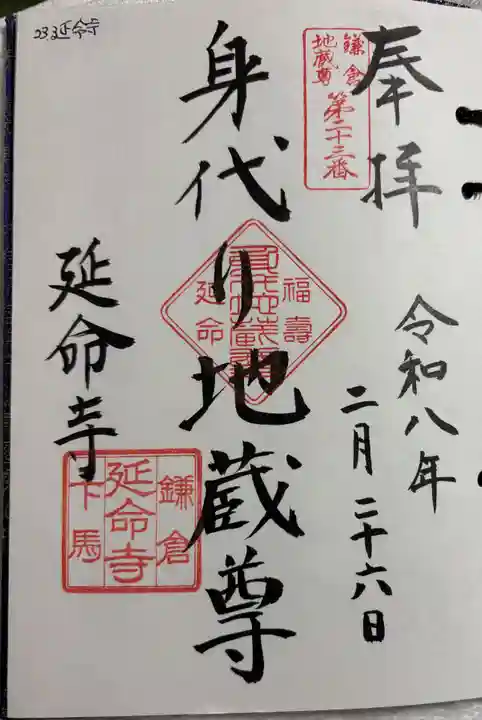 23延命寺
奉拝
鎌倉
地蔵尊
第二十三番
令和八年
二月二十六日
身代り地蔵尊
福壽
延命
延命寺
鎌倉
延命寺
下馬